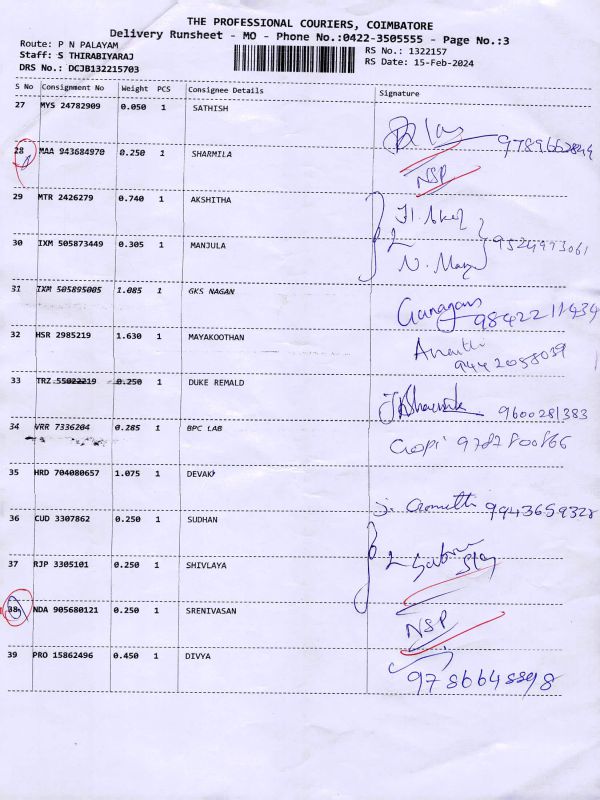 THE PROFESSIONAL COURIERS, COIMBATORE
Delivery Runsheet - MO - Phone No.:0422-3505555 - Page No.:3
Route: P N PALAYAM
RS No.: 1322157
Staff: S THIRABIYARAJ
RS Date: 15-Feb-2024
DRS No.: DCJB132215703
S No Consignment No Weight PCS Consignee Details Signature
27 MYS 24782909 0.050 1 SATHISH
28 MAA 943684970 0.250 1 SHARMILA
NSP
29 MTR 2426279 0.740 1 AKSHITHA
30 IXM 505873449 0.305 1 MANJULA
9524993061
31 IXM 505895005 1.085 1 GKS NAGAN
9842211434
32 HSR 2985219 1.630 1 MAYAKOOTHAN
9442058039
33 TRZ 55022219 0.250 1 DUKE REMALD
9600281383
34 VRR 7336204 0.285 1 BPC LAB
Gopi
35 HRD 704080657 1.075 1 DEVAKI
9943659328
36 CUD 3307862 0.250 1 SUDHAN
37 RJP 3305101 0.250 1 SHIVLAYA
38 NDA 905680121 0.250 1 SRENIVASAN
NSP
39 PRO 15862496 0.450 1 DIVYA